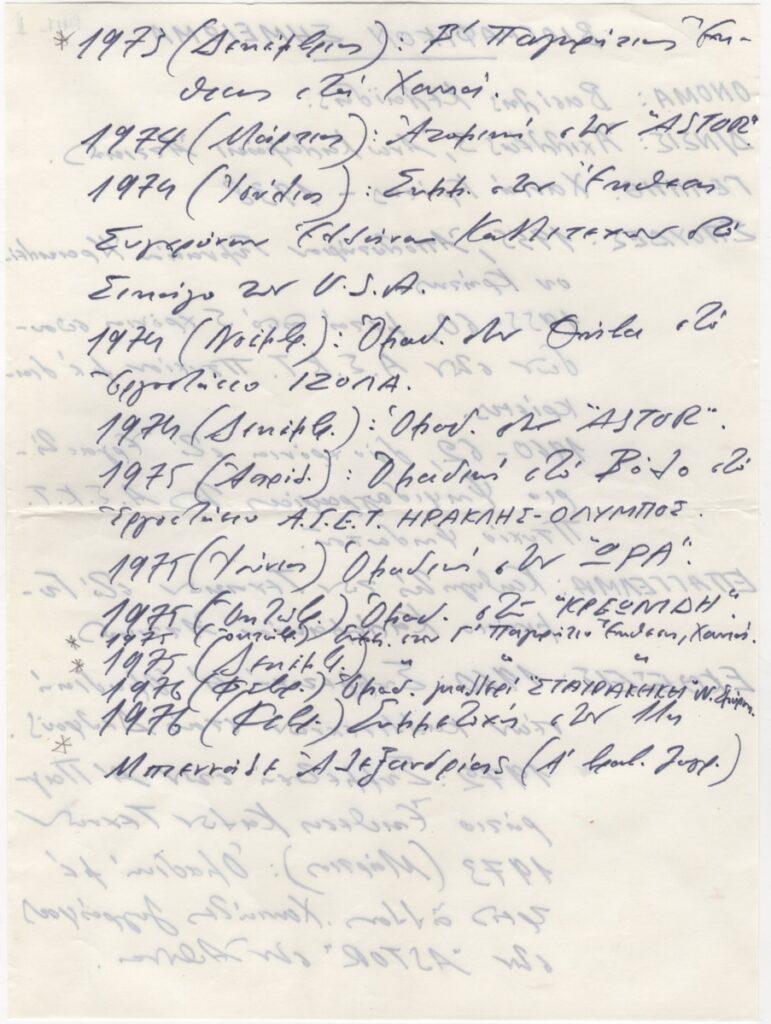 * 1973 (Δεκέμβριος): Β' Παγκρήτιος Ἔκ-
θεσις στά Χανιά.
1974 (Μάρτιος): Ἀτομική στόν "ASTOR".
1974 (Ἰούλιος): Συμμ. στήν Ἔκθεση
Συγχρόνων Ἑλλήνων Καλλιτεχνῶν στό
Σικάγο των U.S.A.
1974 (Νοέμβρ.): Ὁμαδ. στήν Θήβα στό
Ἐργοστάσιο ΙΖΟΛΑ.
1974 (Δεκέμβ.): Ὁμαδ. στόν "ASTOR".
1975 (Ἀπρίλ.): Ὁμαδική στό Βόλο στό
Ἐργοστάσιο Α.Γ.Ε.Τ. ΗΡΑΚΛΗΣ-ΟΛΥΜΠΟΣ.
1975 (Ἰούνιος) Ὁμαδική στήν "ΩΡΑ".
1975 (Ὀκτώβ.) Ὁμαδ. στό "ΚΡΕΩΝΙΔΗ".
* 1975 (Ὀκτώβ.) Συμ. στήν Γ' Παγκρήτιο Ἔκθεση, Χανιά.
* 1975 (Δεκέμβ.) " " "
1976 (Φεβρ.) Ὁμαδ. γκαλλερί "ΣΤΑΥΡΑΚΗΚΗ" Ν. Σμύρνη.
1976 (Φεβρ.) Συμμετοχή στήν 11η
* Μπιεννάλε Ἀλεξανδρίας (Α' βραβ. ζωγρ.)